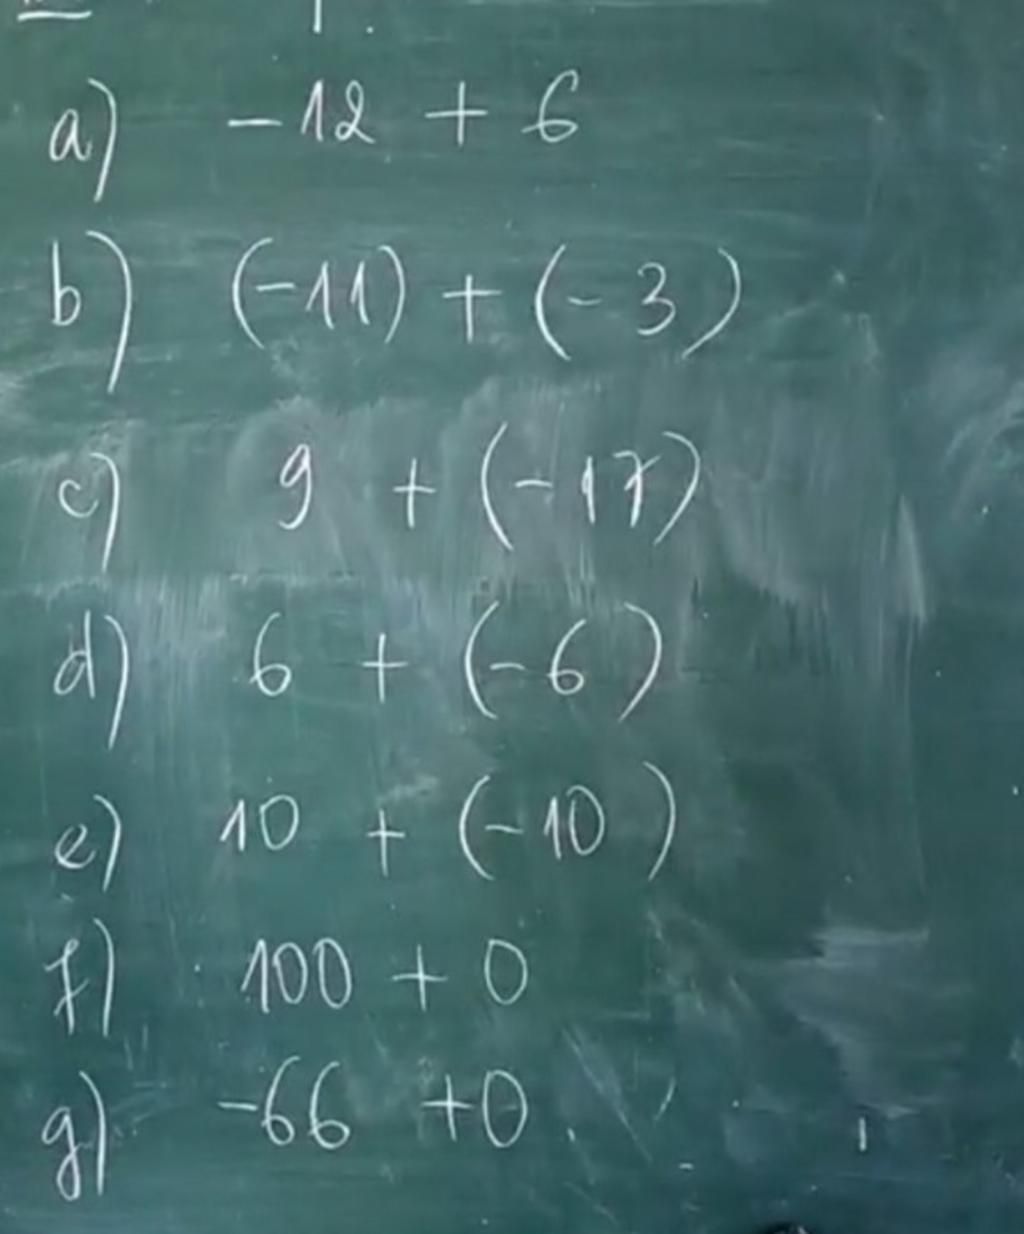 a) -12 + 6
b) (-11) + (-3)
c) 9 + (-17)
d) 6 + (-6)
e) 10 + (-10)
f) 100 + 0
g) -66 + 0